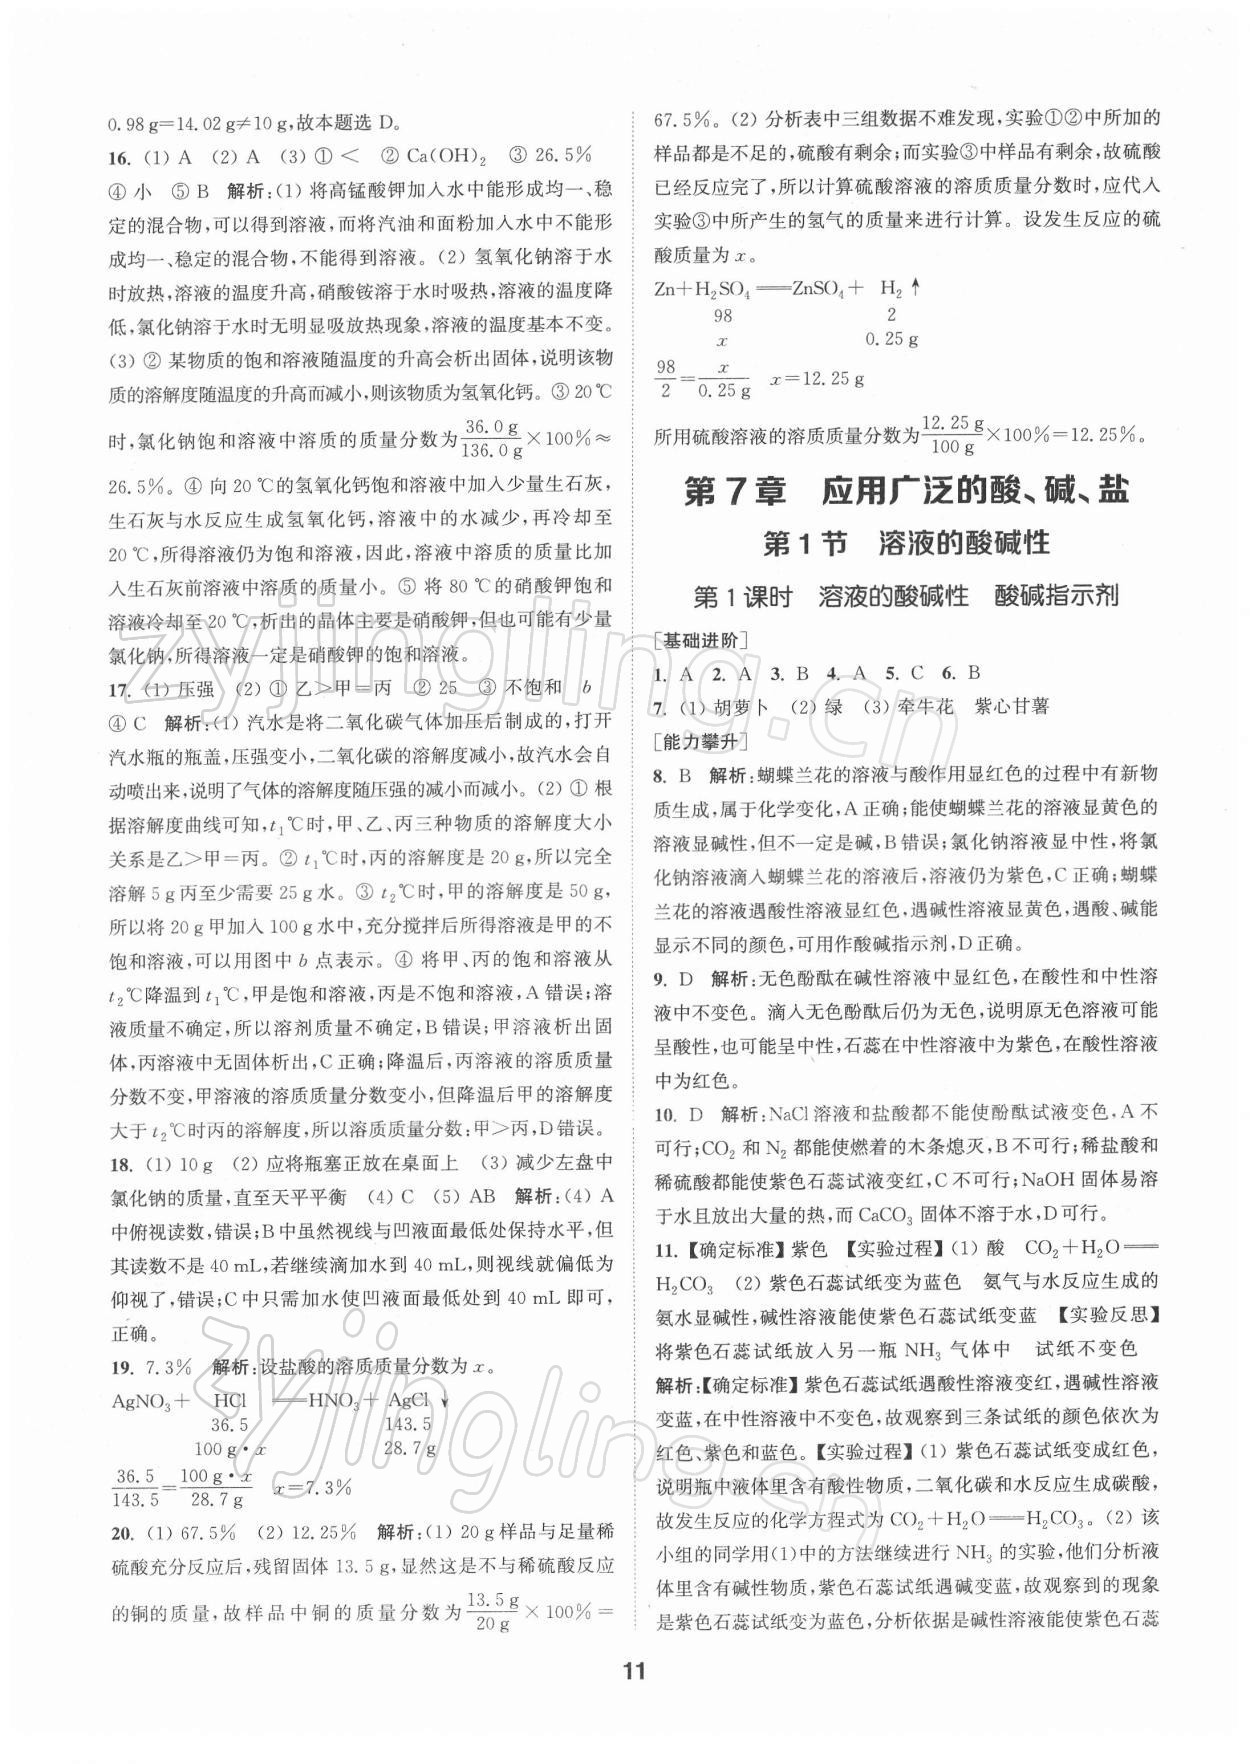 0.98 g=14.02 g≠10 g,故本题选 D。
16. (1) A (2) A (3) ① < ② Ca(OH)₂ ③ 26.5%
④ 小 ⑤ B 解析:(1) 将高锰酸钾加入水中能形成均一、稳
定的混合物,可以得到溶液,而将汽油和面粉加入水中不能形
成均一、稳定的混合物,不能得到溶液。(2) 氢氧化钠溶于水
时放热,溶液的温度升高,硝酸铵溶于水时吸热,溶液的温度降
低,氯化钠溶于水时无明显吸放热现象,溶液的温度基本不变。
(3) ② 某物质的饱和溶液随温度的升高会析出固体,说明该物
质的溶解度随温度的升高而减小,则该物质为氢氧化钙。③ 20 ℃
时,氯化钠饱和溶液中溶质的质量分数为 36.0 g/136.0 g ×100%≈
26.5%。④ 向 20 ℃的氢氧化钙饱和溶液中加入少量生石灰,
生石灰与水反应生成氢氧化钙,溶液中的水减少,再冷却至
20 ℃,所得溶液仍为饱和溶液,因此,溶液中溶质的质量比加
入生石灰前溶液中溶质的质量小。⑤ 将 80 ℃的硝酸钾饱和
溶液冷却至20 ℃,析出的晶体主要是硝酸钾,但也可能有少量
氯化钠,所得溶液一定是硝酸钾的饱和溶液。
17. (1) 压强 (2) ① 乙>甲=丙 ② 25 ③ 不饱和 b
④ C 解析:(1) 汽水是将二氧化碳气体加压后制成的,打开
汽水瓶的瓶盖,压强变小,二氧化碳的溶解度减小,故汽水会自
动喷出来,说明了气体的溶解度随压强的减小而减小。(2) ① 根
据溶解度曲线可知,t₁℃时,甲、乙、丙三种物质的溶解度大小
关系是乙>甲=丙。② t₁℃时,丙的溶解度是 20 g,所以完全
溶解 5 g 丙至少需要 25 g 水。③ t₂℃时,甲的溶解度是 50 g,
所以将 20 g 甲加入 100 g 水中,充分搅拌后所得溶液是甲的不
饱和溶液,可以用图中 b 点表示。④ 将甲、丙的饱和溶液从
t₂℃降温到 t₁℃,甲是饱和溶液,丙是不饱和溶液,A 错误;溶
液质量不确定,所以溶剂质量不确定,B 错误;甲溶液析出固
体,丙溶液中无固体析出,C 正确;降温后,丙溶液的溶质质量
分数不变,甲溶液的溶质质量分数变小,但降温后甲的溶解度
大于 t₂℃时丙的溶解度,所以溶质质量分数:甲>丙,D 错误。
18. (1) 10 g (2) 应将瓶塞正放在桌面上 (3) 减少左盘中
氯化钠的质量,直至天平平衡 (4) C (5) AB 解析:(4) A
中俯视读数,错误;B 中虽然视线与凹液面最低处保持水平,但
其读数不是 40 mL,若继续滴加水到 40 mL,则视线就偏低为
仰视了,错误;C 中只需加水使凹液面最低处到 40 mL 即可,
正确。
19. 7.3% 解析:设盐酸的溶质质量分数为 x。
AgNO₃+ HCl ══HNO₃+ AgCl↓
36.5 143.5
100 g·x 28.7 g
36.5/143.5 = 100 g·x/28.7 g x=7.3%
20. (1) 67.5% (2) 12.25% 解析:(1) 20 g 样品与足量稀
硫酸充分反应后,残留固体 13.5 g,显然这是不与稀硫酸反应
的铜的质量,故样品中铜的质量分数为 13.5 g/20 g ×100%=
67.5%。(2) 分析表中三组数据不难发现,实验①②中所加的
样品都是不足的,硫酸有剩余;而实验③中样品有剩余,故硫酸
已经反应完了,所以计算硫酸溶液的溶质质量分数时,应代入
实验③中所产生的氢气的质量来进行计算。设发生反应的硫
酸质量为 x。
Zn+H₂SO₄══ZnSO₄+ H₂↑
98 2
x 0.25 g
98/2 = x/0.25 g x=12.25 g
所用硫酸溶液的溶质质量分数为 12.25 g/100 g ×100%=12.25%。
第 7 章 应用广泛的酸、碱、盐
第 1 节 溶液的酸碱性
第 1 课时 溶液的酸碱性 酸碱指示剂
[基础进阶]
1. A 2. A 3. B 4. A 5. C 6. B
7. (1) 胡萝卜 (2) 绿 (3) 牵牛花 紫心甘薯
[能力攀升]
8. B 解析:蝴蝶兰花的溶液与酸作用显红色的过程中有新物
质生成,属于化学变化,A 正确;能使蝴蝶兰花的溶液显黄色的
溶液显碱性,但不一定是碱,B 错误;氯化钠溶液显中性,将氯
化钠溶液滴入蝴蝶兰花的溶液后,溶液仍为紫色,C 正确;蝴蝶
兰花的溶液遇酸性溶液显红色,遇碱性溶液显黄色,遇酸、碱能
显示不同的颜色,可用作酸碱指示剂,D 正确。
9. D 解析:无色酚酞在碱性溶液中显红色,在酸性和中性溶
液中不变色。滴入无色酚酞后仍为无色,说明原无色溶液可能
呈酸性,也可能呈中性,石蕊在中性溶液中为紫色,在酸性溶液
中为红色。
10. D 解析:NaCl 溶液和盐酸都不能使酚酞试液变色,A 不
可行;CO₂ 和 N₂ 都能使燃着的木条熄灭,B 不可行;稀盐酸和
稀硫酸都能使紫色石蕊试液变红,C 不可行;NaOH 固体易溶
于水且放出大量的热,而 CaCO₃ 固体不溶于水,D 可行。
11. 【确定标准】紫色 【实验过程】(1) 酸 CO₂+H₂O══
H₂CO₃ (2) 紫色石蕊试纸变为蓝色 氨气与水反应生成的
氨水显碱性,碱性溶液能使紫色石蕊试纸变蓝 【实验反思】
将紫色石蕊试纸放入另一瓶 NH₃ 气体中 试纸不变色
解析:【确定标准】紫色石蕊试纸遇酸性溶液变红,遇碱性溶液
变蓝,在中性溶液中不变色,故观察到三条试纸的颜色依次为
红色、紫色和蓝色。【实验过程】(1) 紫色石蕊试纸变成红色,
说明瓶中液体里含有酸性物质,二氧化碳和水反应生成碳酸,
故发生反应的化学方程式为 CO₂+H₂O══H₂CO₃。(2) 该
小组的同学用(1)中的方法继续进行 NH₃ 的实验,他们分析液
体里含有碱性物质,紫色石蕊试纸遇碱变蓝,故观察到的现象
是紫色石蕊试纸变为蓝色,分析依据是碱性溶液能使紫色石蕊
11
zyjingling.cn
zyjingling.cn